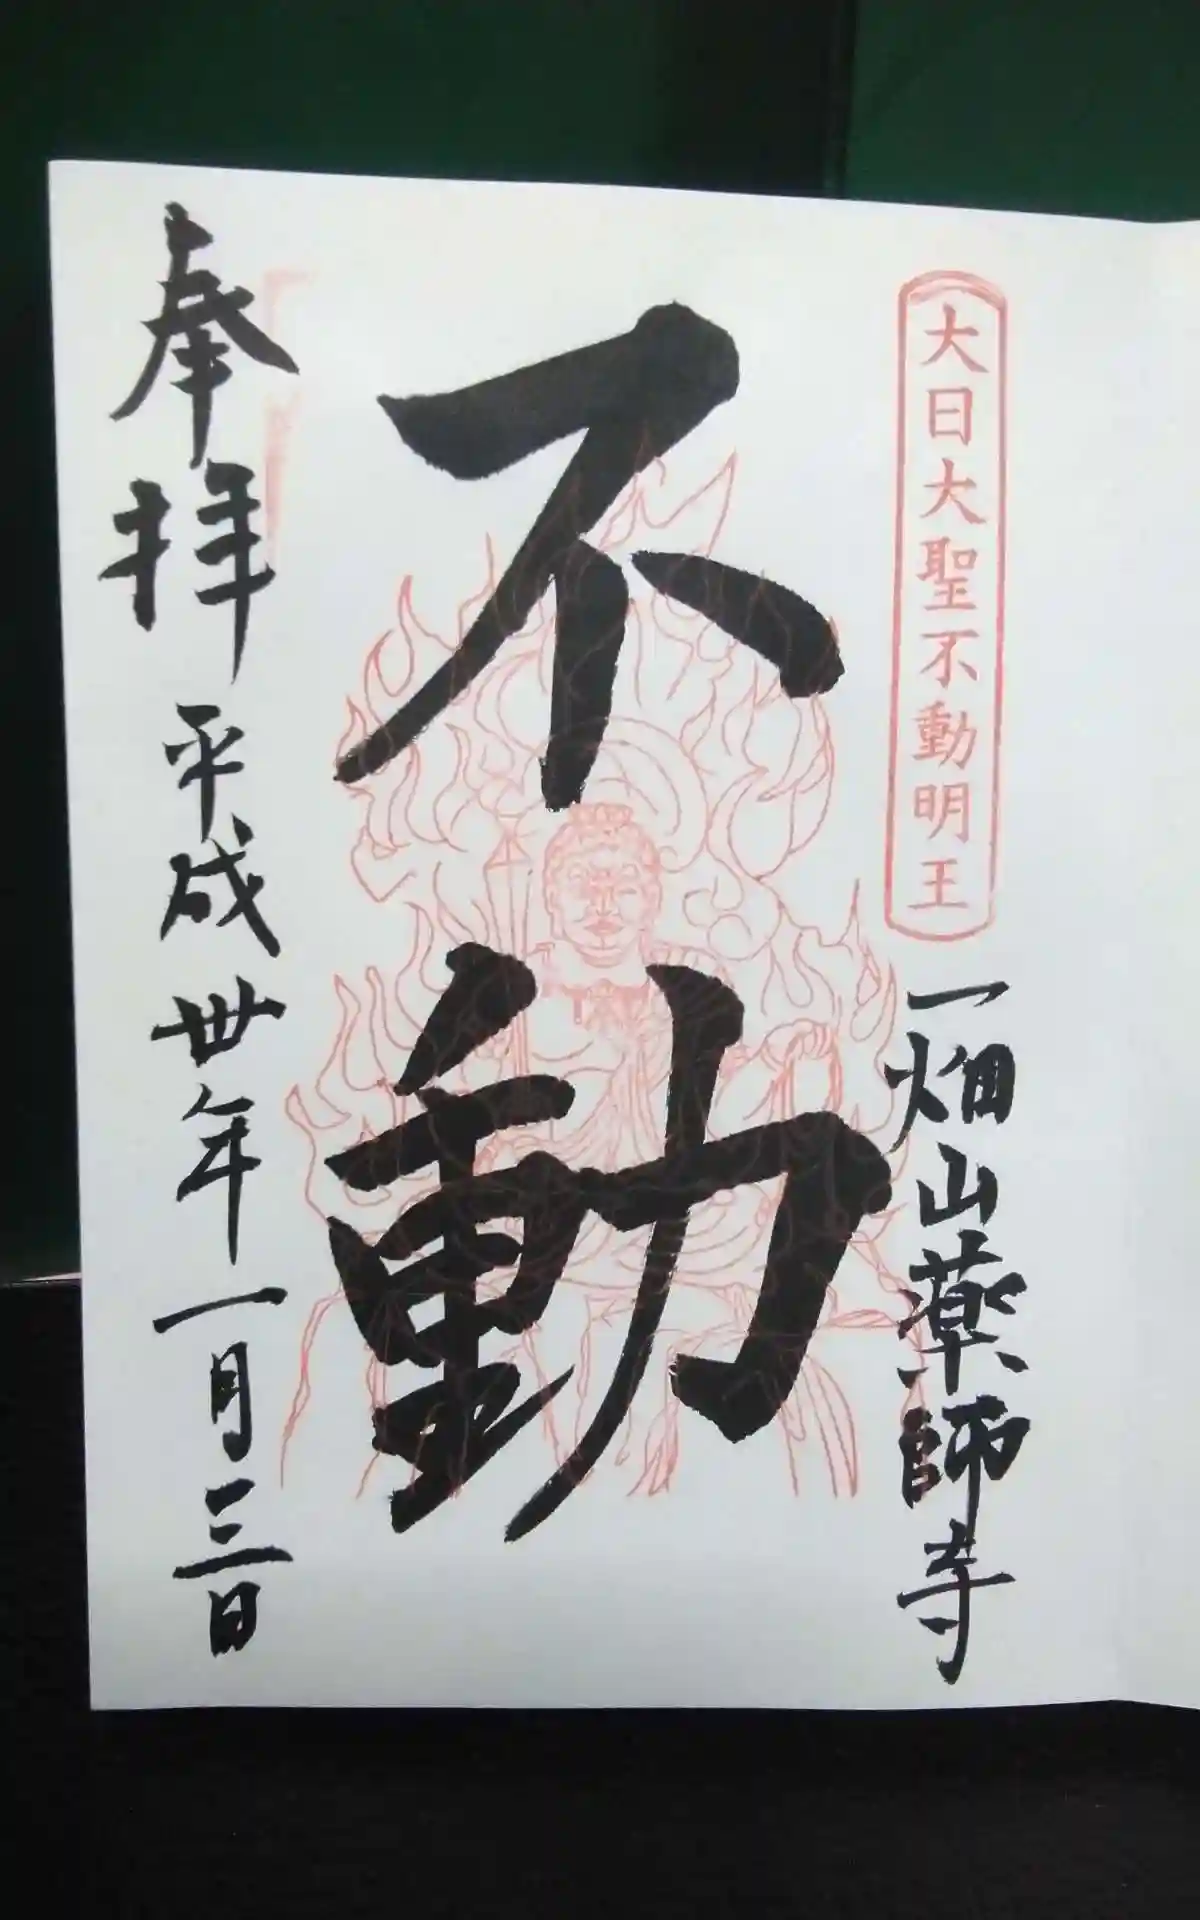 大日大聖不動明王
一畑山薬師寺
不動
奉拝 平成卅年一月三日